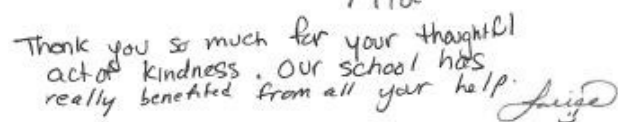 Thank you so much for your thoughtful
act of kindness. Our school has
really benefited from all your help.
Louise